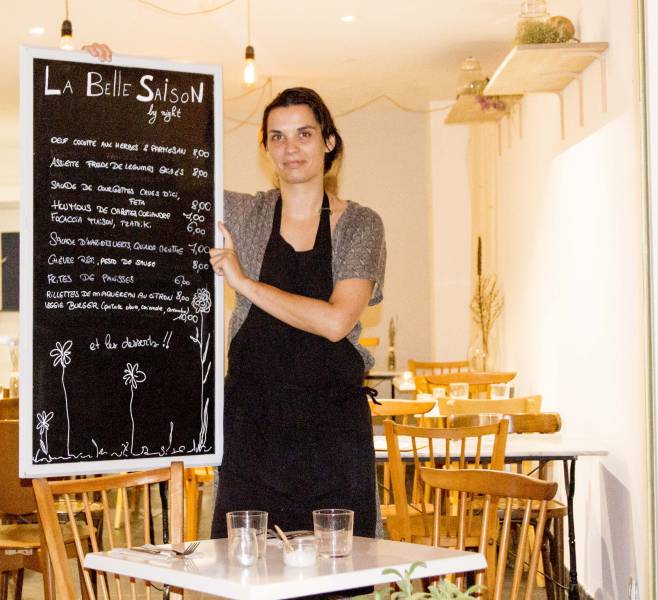 LA BELLE SAISON
by night
OEUF COCOTTE AUX HERBES & PARMESAN 8,00
ASSIETTE FROIDE DE LEGUMES 8,00
SALADE DE COURGETTES CRUES D'ICI,
FETA 8,00
HOUMOUS DE CAROTTES CORIANDRE 7,00
FOCACCIA MAISON, 6,00
SALADE D'HARICOTS VERTS, MOUTARDE 7,00
CHEVRE RÔTI, PESTO DE SAUGE 8,00
FRITES DE PANISSES 6,00
RILLETTES DE MAQUEREAU AU CITRON 8,00
VEGGIE BURGER 10,00
et les desserts !!